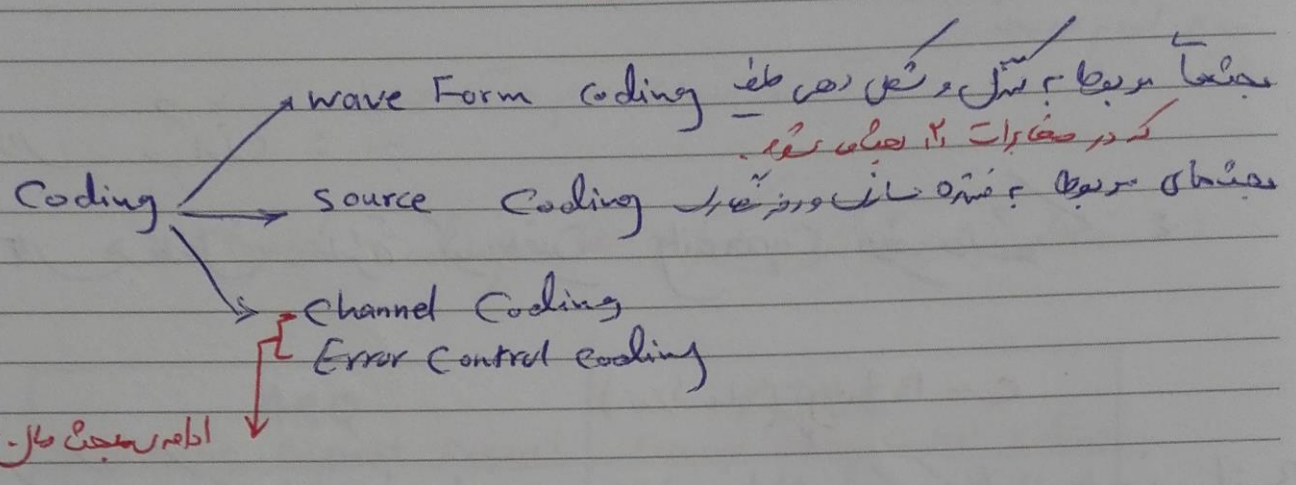 wave Form coding بحث‌ها مربوط به سیگنال و شکل دهی طیف
که در مخابرات ۲ بحث می شود.
Coding
source Coding بحث‌های مربوط به فشرده سازی و رمز نگاری
channel Coding
Error Control coding
ادامه‌ی بحث ما.